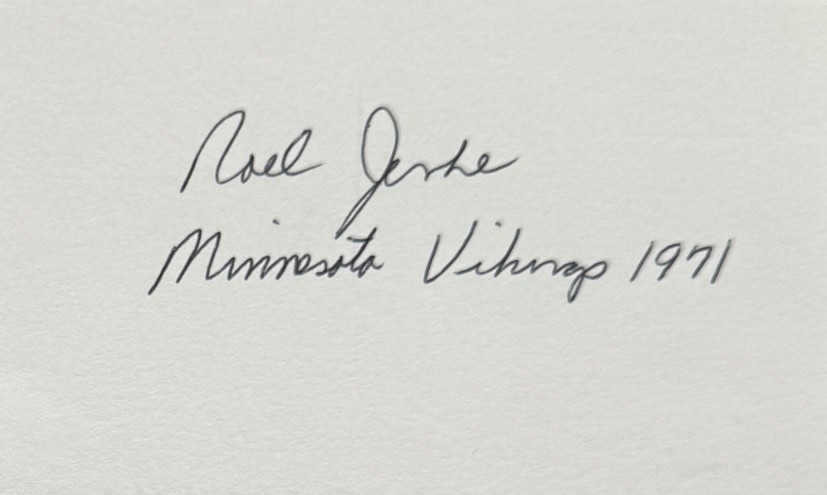 Noel Jenke
Minnesota Vikings 1971